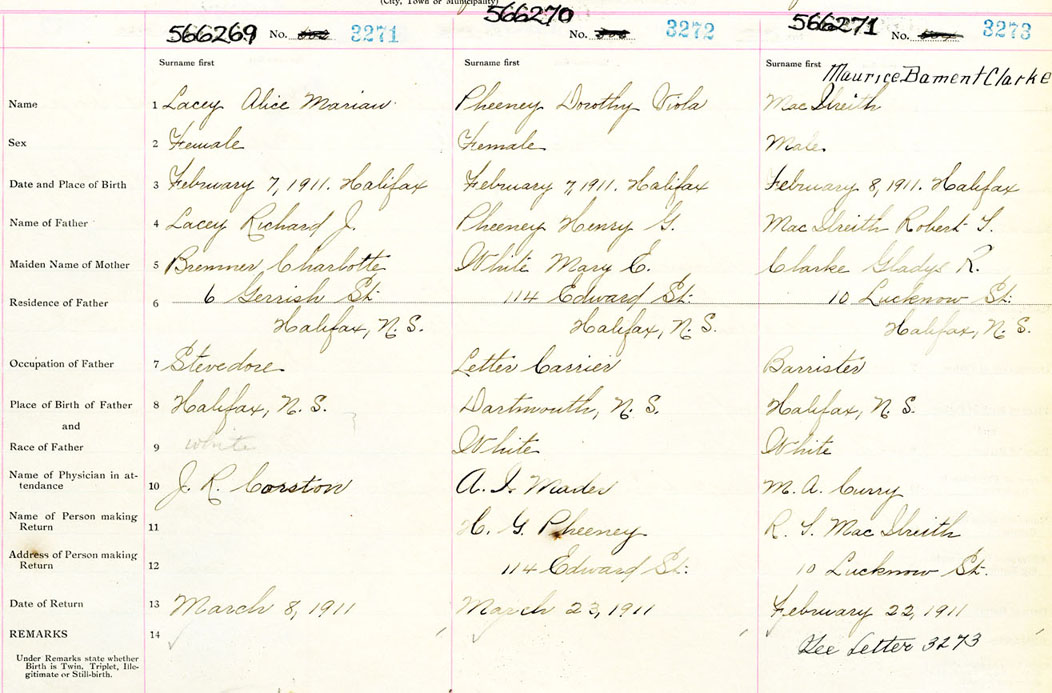 (City, Town or Municipality)
566269 No. 3271
566270 No. 3272
566271 No. 3273
Surname first Surname first Surname first Maurice Bament Clarke
Name 1 Lacey Alice Marian Pheeney Dorothy Viola MacIlreith
Sex 2 Female Female Male
Date and Place of Birth 3 February 7, 1911. Halifax February 7, 1911. Halifax February 8, 1911. Halifax
Name of Father 4 Lacey Richard J. Pheeney Henry G. MacIlreith Robert T.
Maiden Name of Mother 5 Bremner Charlotte White Mary E. Clarke Gladys R.
Residence of Father 6 6 Gerrish St. 114 Edward St. 10 Lucknow St.
Halifax, N.S. Halifax, N.S. Halifax, N.S.
Occupation of Father 7 Stevedore Letter Carrier Barrister
Place of Birth of Father 8 Halifax, N.S. Dartmouth, N.S. Halifax, N.S.
and
Race of Father 9 White White White
Name of Physician in at- 10 J. R. Corston A. I. Mader M. A. Curry
tendance
Name of Person making 11 H. G. Pheeney R. T. MacIlreith
Return
Address of Person making 12 114 Edward St. 10 Lucknow St.
Return
Date of Return 13 March 8, 1911 March 23, 1911 February 22, 1911
REMARKS 14 See Letter 3273
Under Remarks state whether
Birth is Twin, Triplet, Ille-
gitimate or Still-birth.